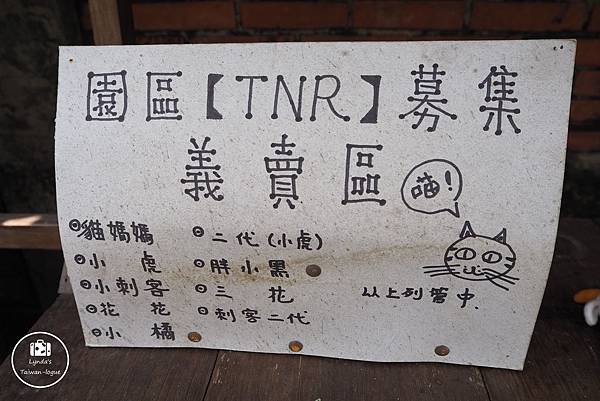 園區【TNR】募集
義賣區
喵!
貓媽媽
小虎
小刺客
花花
小橘
二代(小虎)
胖小黑
三花
刺客二代
以上列管中.
Lynda's
Taiwan-logue